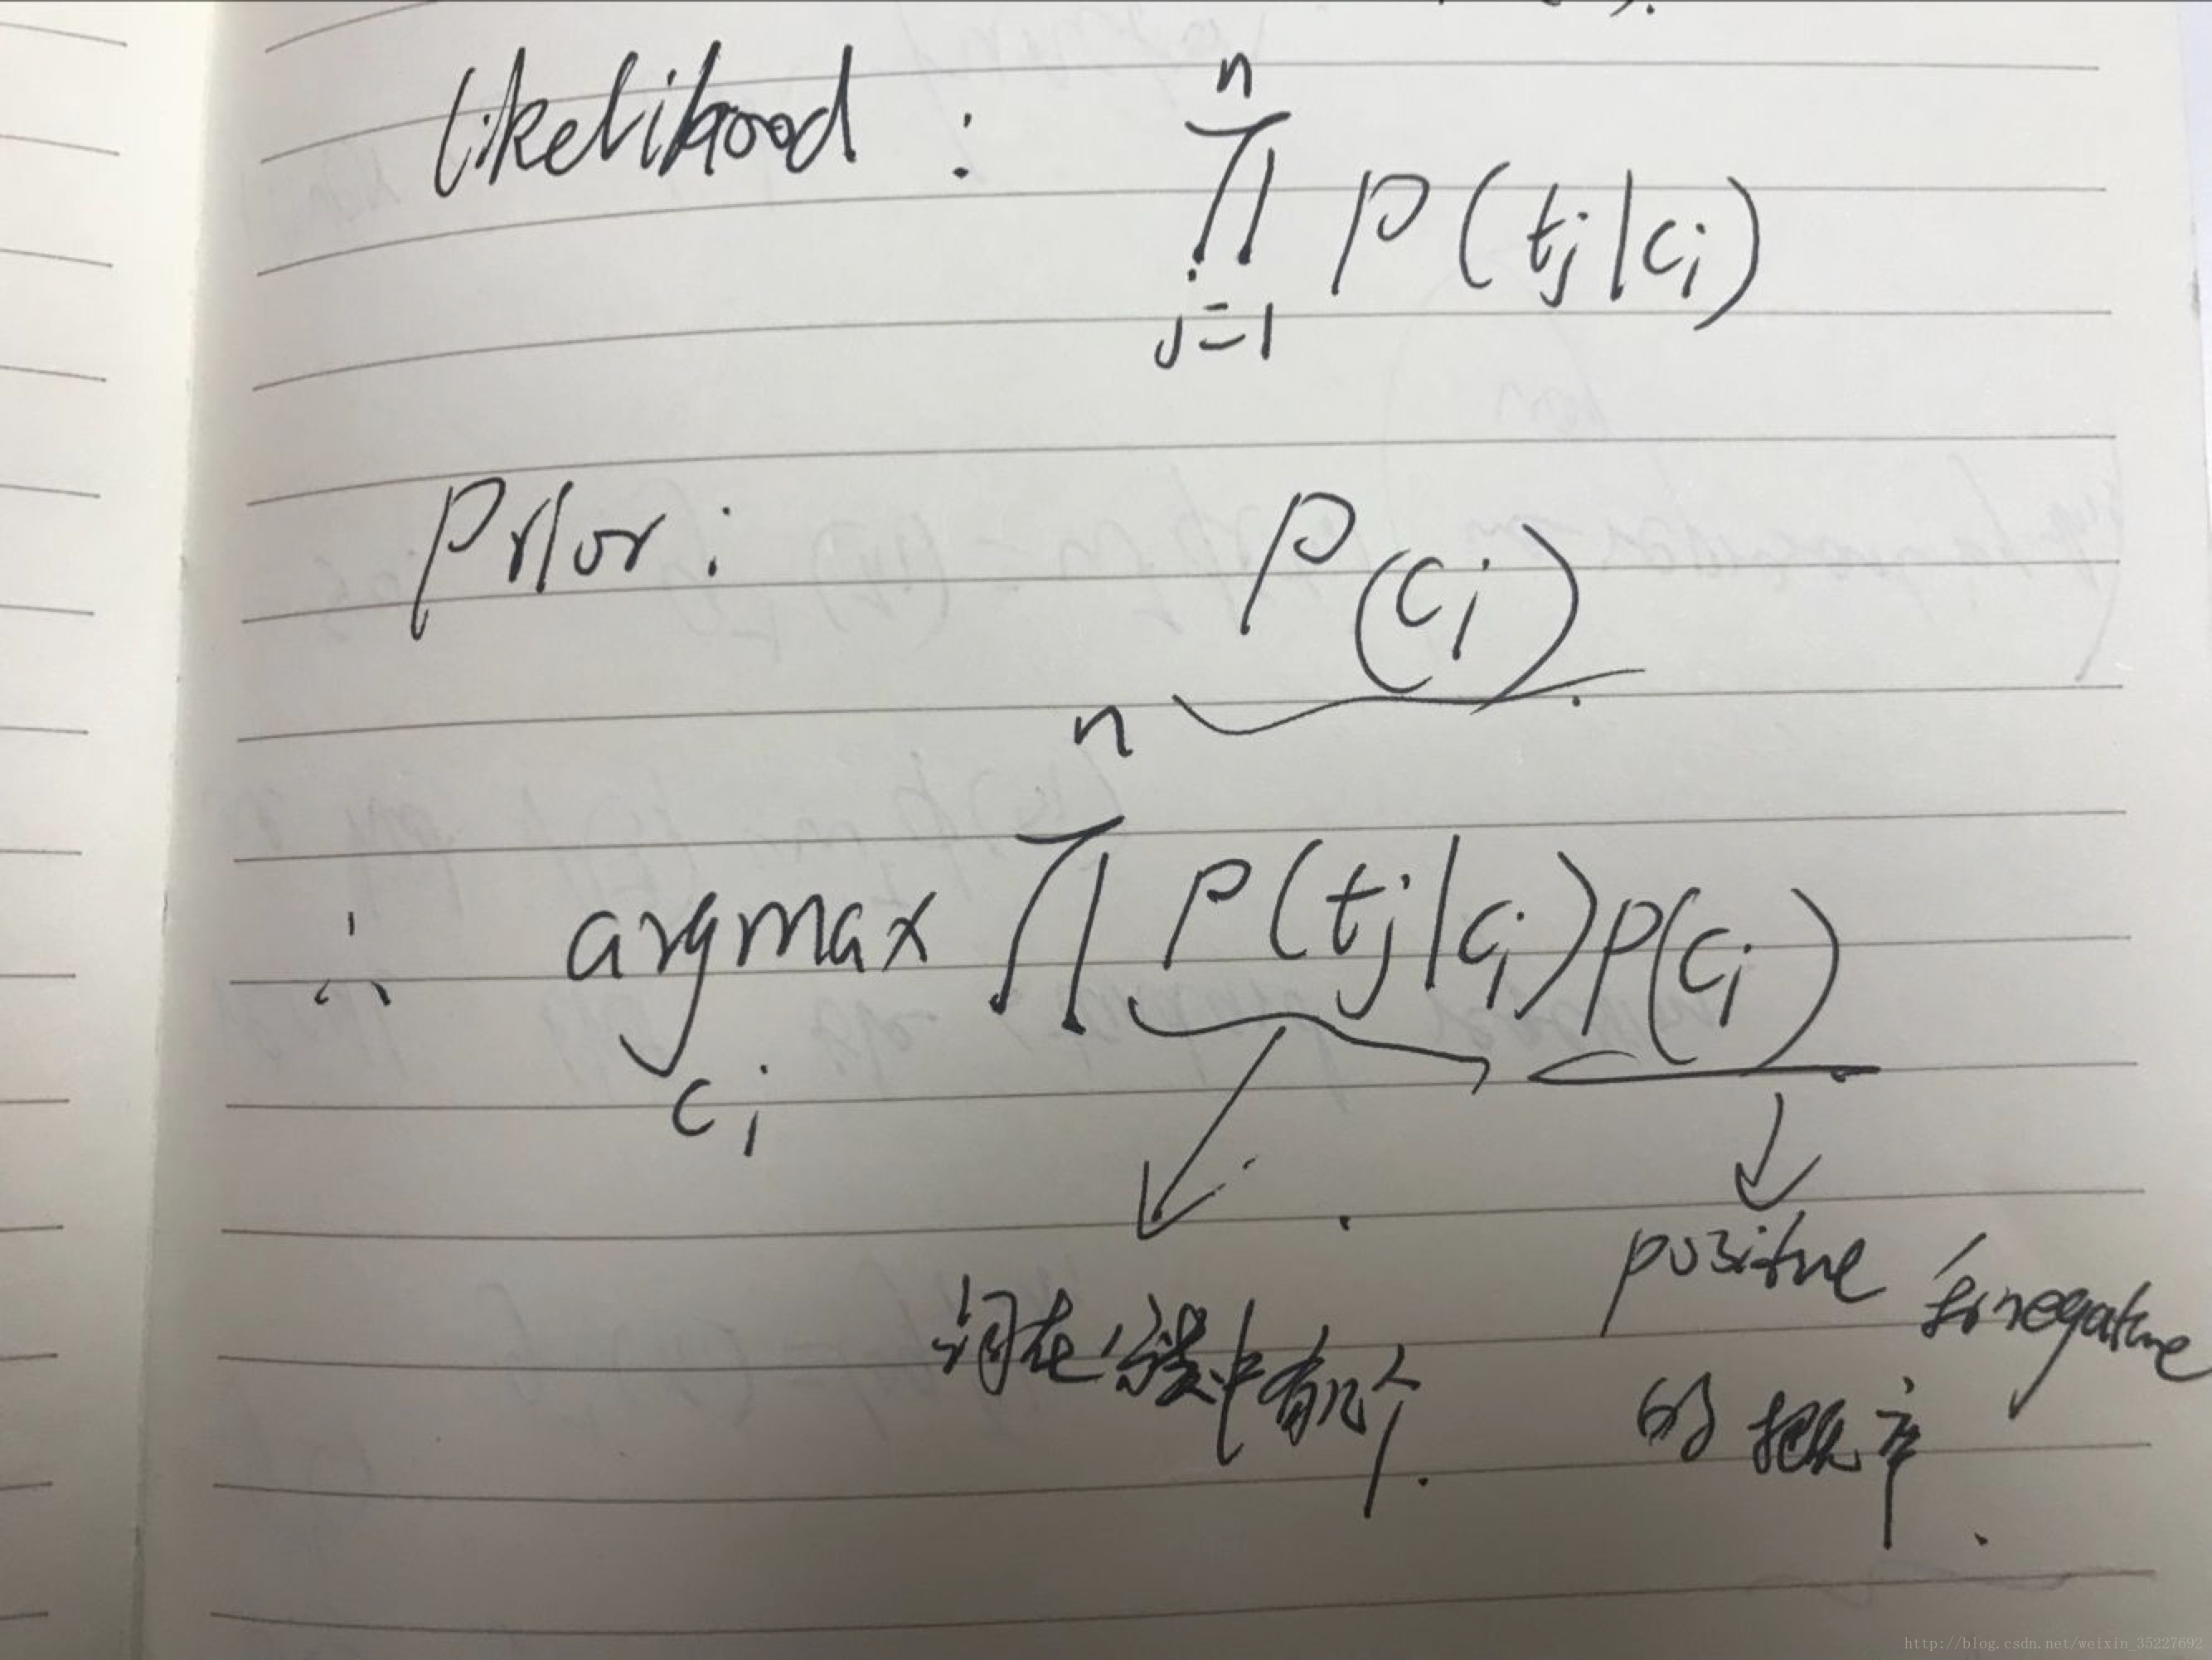 Likelihood : n∏j=1 P(tj|ci)
Prior : P(ci)
∴ argmax ci n∏ P(tj|ci)P(ci)
词在分类中有几个.
positive 和 negative
的概率.
http://blog.csdn.net/weixin_35227692